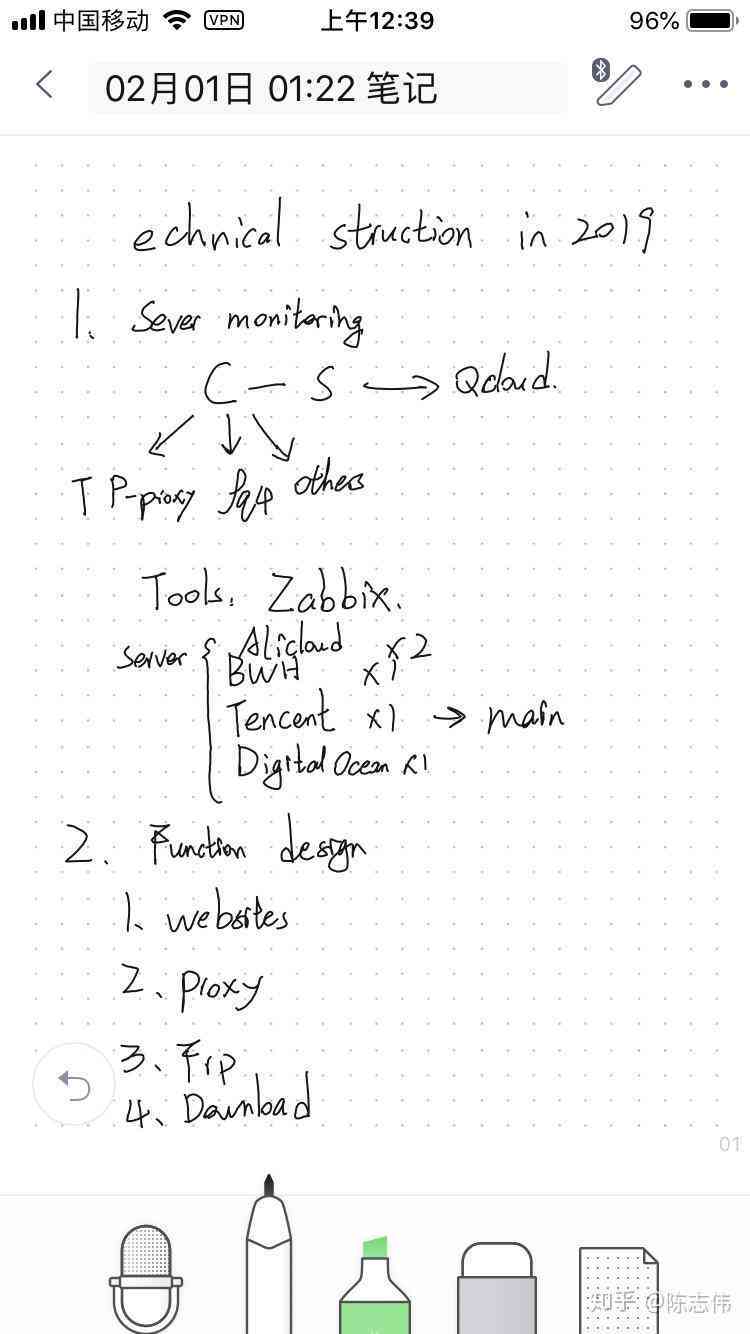 中国移动 VPN 上午12:39 96%
02月01日 01:22 笔记
echnical struction in 2019
1. Sever monitoring
C — S → Qcloud.
T P-proxy others
Tools: Zabbix.
Server { Alicloud x2
BWH x1
Tencent x1 → main
Digital Ocean x1
2. Function design
1、websites
2、proxy
3、Frp
4、Download
01
知乎 @陈志伟